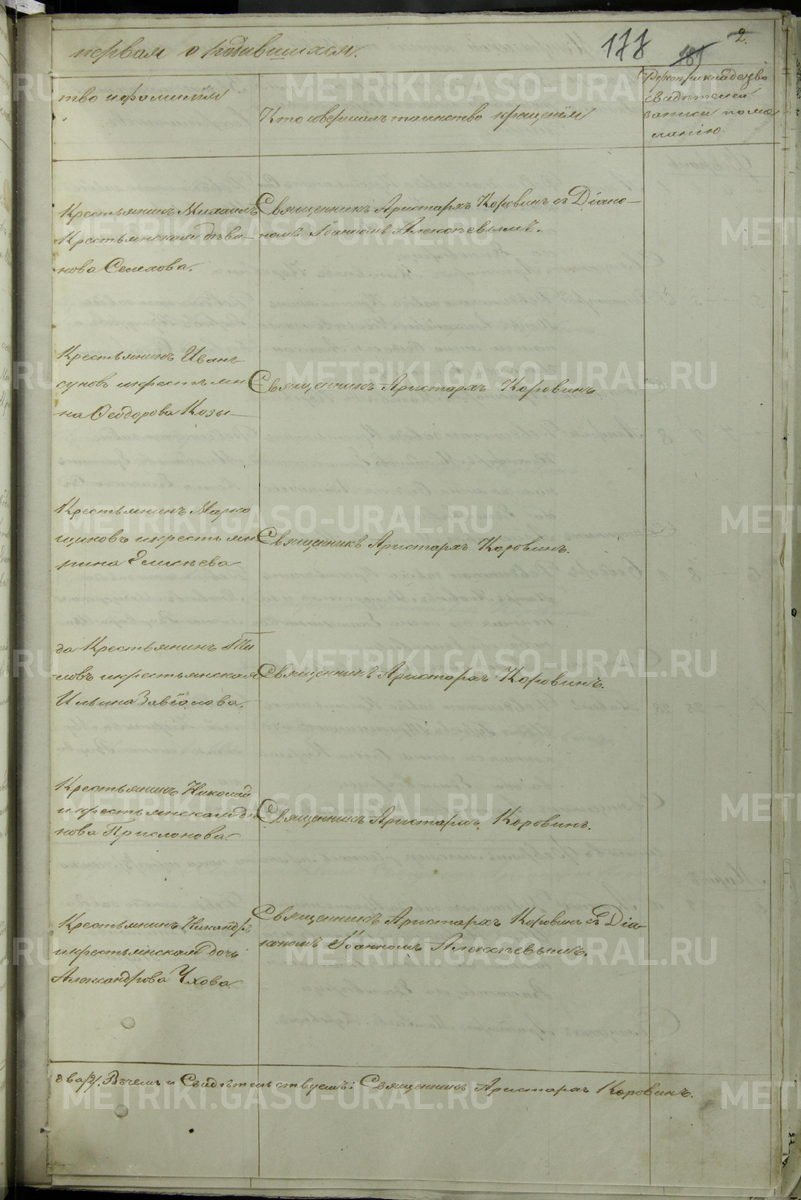 первая о родившихся.
177
2.
тво и фамилия
Кто совершалъ таинство крещенія
свидѣтелей
записи по же-
ланію.
Крестьянинъ Михаилъ
Крестьянская дѣва
нова Селехова.
Священникъ Аристархъ Коровинъ съ Діако-
номъ Іоанномъ Алексѣевымъ.
Крестьянинъ Иванъ
суновъ и крестьян
на Ѳеодорова Козы
Священникъ Аристархъ Коровинъ
Крестьянинъ Марко
щиковъ и крестьян
рина Елисѣева
Священникъ Аристархъ Коровинъ.
да Крестьянинъ
ловъ и крестьянская
Ильина Завьялова.
Священникъ Аристархъ Коровинъ.
Крестьянинъ Николай
и крестьянская
нова Прислонова
Священникъ Аристархъ Коровинъ.
Крестьянинъ Никандръ
и крестьянская дочь
Александрова Ухова
Священникъ Аристархъ Коровинъ съ Діа-
кономъ Іоанномъ Алексѣевымъ.
два /2/. Въ чемъ и свидѣтельствуемъ: Священникъ Аристархъ Коровинъ.
METRIKI.GASO-URAL.RU